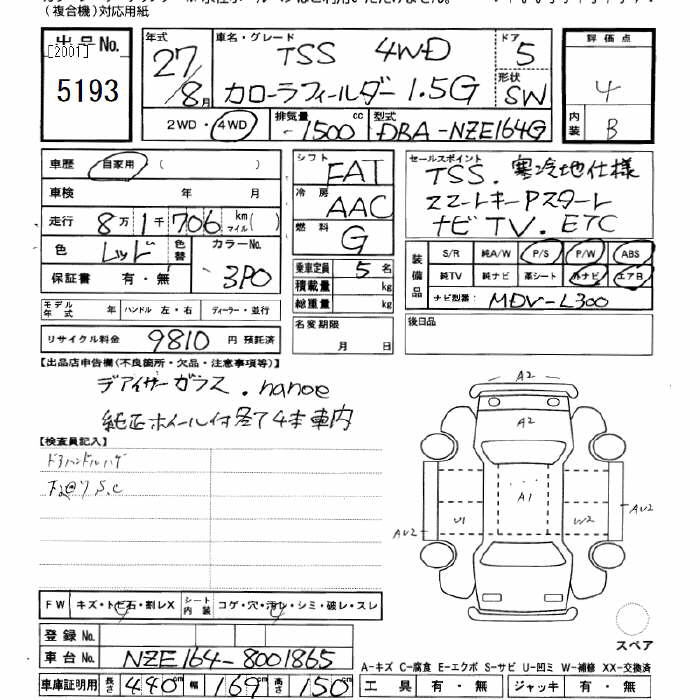 (複合機)対応用紙
出品No.
[2001]
5193
年式 27/8月
車名・グレード TSS 4WD
カローラフィールダー 1.5G
ドア 5
形状 SW
評価点 4
内装 B
2WD・4WD
排気量 1500 cc
型式 DBA-NZE164G
車歴 自家用 ( )
車検 年 月
走行 8万1千706 km マイル( )
色 レッド 色替 カラーNo. 3P0
保証書 有・無
モデル年式 年 ハンドル 左・右 ディーラー・並行
リサイクル料金 9810 円 預託済
シフト FAT
冷房 AAC
燃料 G
乗車定員 5 名
積載量 kg
総重量 kg
名変期限 月 日
セールスポイント
TSS.寒冷地仕様
スマートキーPスタート
ナビTV.ETC
装備品 S/R 純A/W P/S P/W ABS
純TV 純ナビ 革シート 外ナビ エアB
ナビ型番: MDV-L300
後日品
【出品店申告欄(不良箇所・欠品・注意事項等)】
デアイサーガラス.nanoe
純正ホイール付冬タ4本車内
【検査員記入】
ドアハンドルハゲ
S.C
A2
A2
A1
U1
W2
AU2
AU2
スペア
FW キズ・トビ石・割レX シート内装 コゲ・穴・汚レ・シミ・破レ・スレ
登録No.
車台No. NZE164-8001865
車庫証明用 長さ 440 cm 幅 169 cm 高さ 150 cm
A-キズ C-腐食 E-エクボ S-サビ U-凹ミ W-補修 XX-交換済
工具 有・無 ジャッキ 有・無